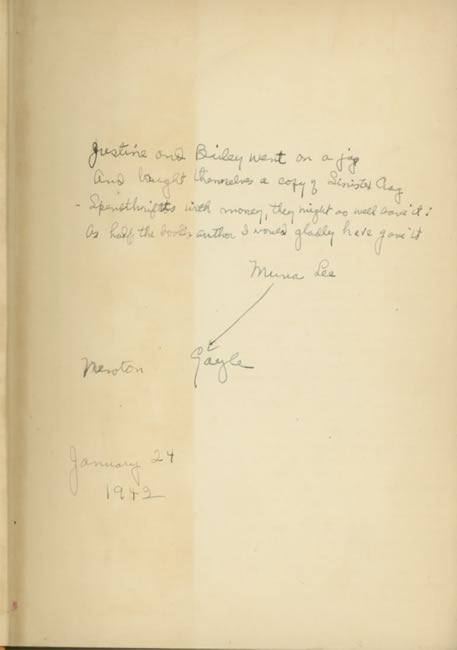 Justine and Bailey went on a jag
And bought themselves a copy of Sinister Crag
- Spendthrifts with money, they might as well save it:
As half the book's author I would gladly have gave it
Muna Lee
Newton Gayle
January 24
1942